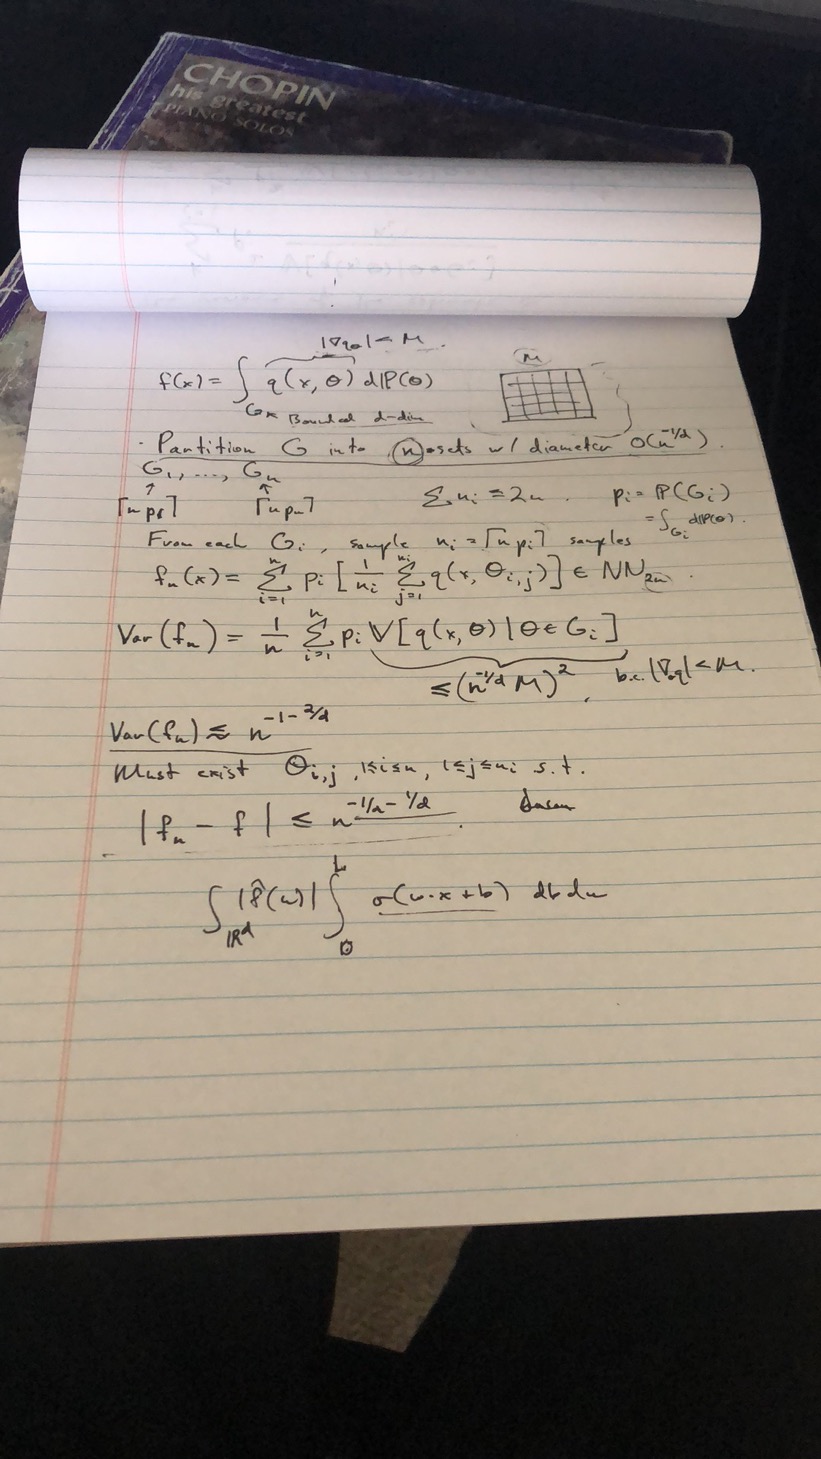 CHOPIN
his greatest
PIANO SOLOS
|∇qθ| < M.
f(x) = ∫ q(x, θ) dℙ(θ)
G ← Bounded d-dim
M
· Partition G into n sets w/ diameter O(n^{-1/d}).
G₁, ..., Gₙ
↑ ↑
⌈np₁⌉ ⌈npₙ⌉ Σ nᵢ = 2n. pᵢ = ℙ(Gᵢ)
= ∫_{Gᵢ} dℙ(θ).
From each Gᵢ, sample nᵢ = ⌈npᵢ⌉ samples
fₙ(x) = Σ_{i=1}^{n} pᵢ [1/nᵢ Σ_{j=1}^{nᵢ} q(x, θ_{i,j})] ∈ NN_{2n}.
Var(fₙ) = 1/n Σ_{i=1}^{n} pᵢ V[q(x, θ) | θ ∈ Gᵢ]
≤ (n^{-1/d} M)², b.c. |∇q| < M.
Var(fₙ) ≲ n^{-1-2/d}
Must exist θ_{i,j}, 1≤i≤n, 1≤j≤nᵢ s.t.
|fₙ - f| ≤ n^{-1/2-1/d}.
∫_{ℝ^d} |f̂(ω)| ∫_0^L σ(ω·x+b) db dω